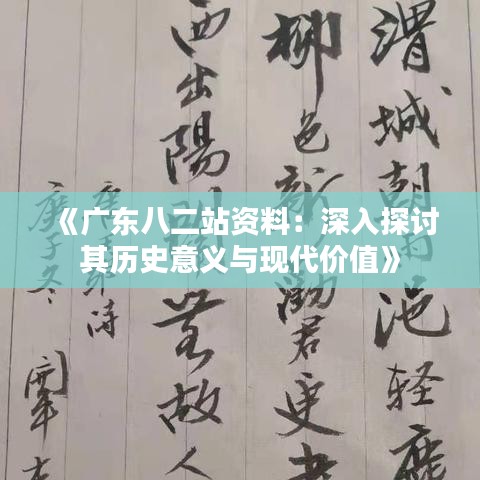 《广东八二站资料：深入探讨
其历史意义与现代价值》
渭城朝雨浥轻
柳色新勸君更
西出陽關無故人
庚子冬